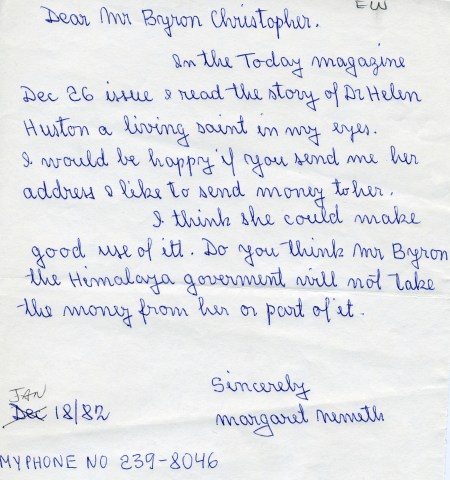 EW
Dear Mr Byron Christopher.
In the Today magazine
Dec 26 issue I read the story of Dr Helen
Huston a living saint in my eyes.
I would be happy if you send me her
address I like to send money to her.
I think she could make
good use of itl. Do you think Mr Byron
the Himalaya goverment will not take
the money from her or part of it.
Sincerely
JAN
Dec 18/82
margaret nemeth
MY PHONE NO 239-8046